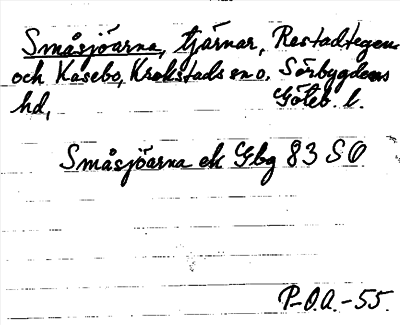 Småsjöarna, tjärnar, Restadtegen
och Kasebo, Krokstads sn o. Sörbygdens
hd, Göteb. l.
Småsjöarna ek Gbg 83 SO
P-O.A.-55.